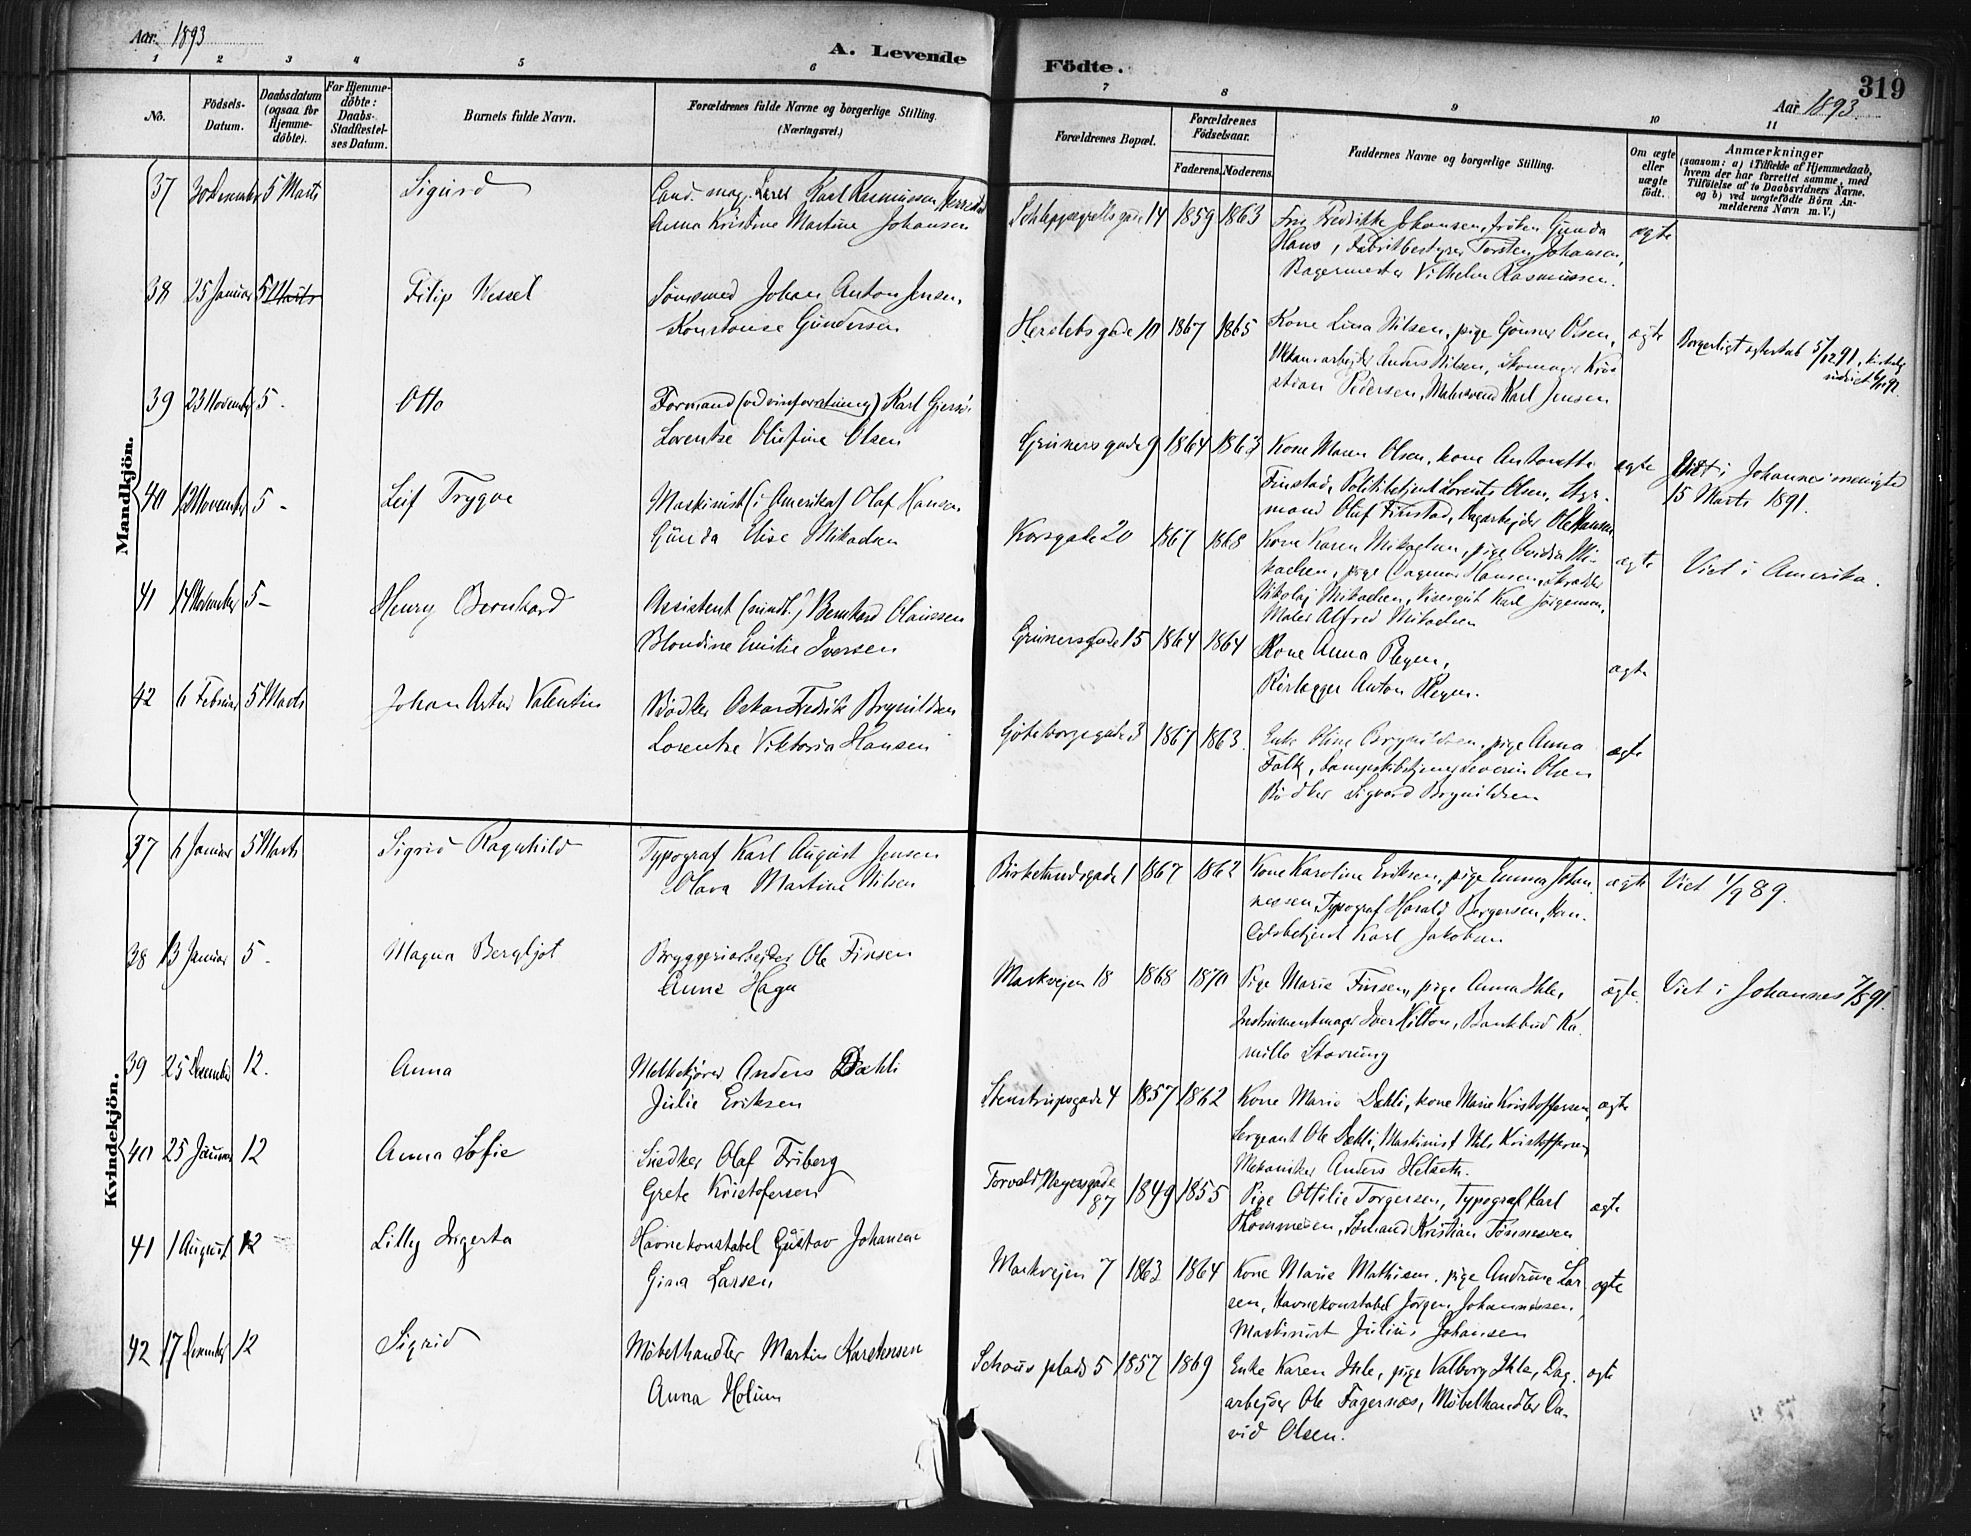 Aar 1893
A. Levende Födte.
319
Aar 1893.
1 2 3 4 5 6 7 8 9 10 11
No.
Födsels-
Datum.
Daabsdatum
(ogsaa for
Hjemme-
döbte).
For Hjemme-
döbte:
Daabs-
Stadfæstel-
ses Datum.
Barnets fulde Navn.
Forældrenes fulde Navne og borgerlige Stilling.
(Næringsvei.)
Forældrenes Bopæl.
Forældrenes
Födselsaar.
Faderens. Moderens.
Faddernes Navne og borgerlige Stilling.
Om ægte
eller
uægte
födt.
Anmærkninger
(saasom: a) i Tilfælde af Hjemmedaab,
hvem der har forrettet samme, med
Tilföielse af to Daabsvidners Navne,
og b) ved uægtefödte Börn An-
melderens Navn m. V.)
Mandkjön.
37 30 December 5 Marts Sigurd Cand. mag. Karl Rasmussen
Anna Kristine Martine Johansen
Schleppegrellsgade 14 1859 1863 Fru Fredrikke Johansen, fröken Gunda
Hans, Fabrikbestyrer Torsten Johansen,
Bagermester Vilhelm Rasmussen.
ægte
38 25 Januar 5 Marts Filip Wessel Johan Anton Jensen,
Konstanse Gundersen
Herslebsgade 10 1867 1865 Kone Lina Nilsen, pige Olsen,
Mekan.arbejder Anders Nilsen, Skomager Kris-
stian Pedersen, Malersvend Karl Jensen
ægte Borgerligt ægteskab 5/12 91,
39 23 November 5. Otto Formand Karl
Lorentse Oliefine Olsen
Grünersgade 9 1864 1863 Kone Maren Olsen, kone Antonette
Finstad, Politibetjent Lorents Olsen, Styr-
mand Oluf Finstad, Dagarbejder Ole Hansen
ægte Viet i Johannes menighed
15 Marts 1891.
40 12 November 5 - Leif Trygve Maskinist (i Amerika) Olaf Hansen
Gunda Elise Mikaelsen
Korsgade 20 1867 1868 Kone Karen Mikaelsen, pige Mi-
kaelsen, pige Dagmar Hansen, Skrædder
Nikolaj Mikaelsen, Visergut Karl Jörgensen,
Maler Alfred Mikaelsen
ægte Viet i Amerika.
41 14 November 5 - Henry Bernhard Assistent Bernhard Claussen
Blondine Emilie Iversen
Grünersgade 15 1864 1864 Kone Anna Reyen,
Rörlægger Anton Reyen.
ægte
42 6 Februar 5 Marts Johan Artur Valentin Bödker Oskar Fredrik Brynildsen
Lorentze Viktoria Hansen
Göteborgsgade 3 1867 1863. Enke Oline Brynildsen, pige Anna
Falk, Severin Olsen
Bödker Sigvard Brynildsen
ægte
Kvindekjön.
37 6 Januar 5 Marts Sigrid Ragnhild Typograf Karl August Jensen
Olava Martine Nilsen
Birkelundsgade 1 1867 1862 Kone Karoline Eriksen, pige Emma Johan-
nessen, Typograf Harald Bergersen, Han-
delsbetjent Karl Jakobsen
ægte Viet 1/9 89.
38 13 Januar 5 - Magna Bergljot Bryggeriarbejder Ole Finsen
Anne Haga
Markvejen 18 1868 1870 Pige Marie Finsen, pige Anna Ihle,
Instrumentmager Iver Hilton, Bankbud Ka-
millo Stavrung
ægte. Viet i Johannes 7/5 91.
39 25 December 12. Anna Melkekjörer Anders Dæhli
Julie Eriksen
Stenstrupsgade 4 1857 1862 Kone Marie Dæhli, kone Marie Kristoffersen,
Sergeant Ole Dæhli, Maskinist Nils Kristoffersen,
Mekaniker Anders Helseth.
ægte
40 25 Januar 12 Anna Sofie Snedker Olaf Friberg
Grete Kristofersen
Torvald Meyersgade
87 1849 1855 Pige Ottilie Torgersen, Typograf Karl
Thommesen, Sömand Kristian Tönnessen
ægte
41 1 August 12 Lilly Ingerta Havnekonstabel Gustav Johansen
Gina Larsen
Markvejen 7 1863 1864 Kone Marie Mathisen, pige Andrine Lar-
sen, Havnekonstabel Jörgen Johannessen,
Maskinist Julius Johansen
ægte
42 17 December 12 Sigrid Möbelhandler Martin Karstensen
Anna Holum
Schous plads 5 1857 1869 Enke Karen Ihle, pige Valborg Ihle, Dag-
arbejder Ole Fagernæs, Möbelhandler Da-
vid Olsen.
ægte